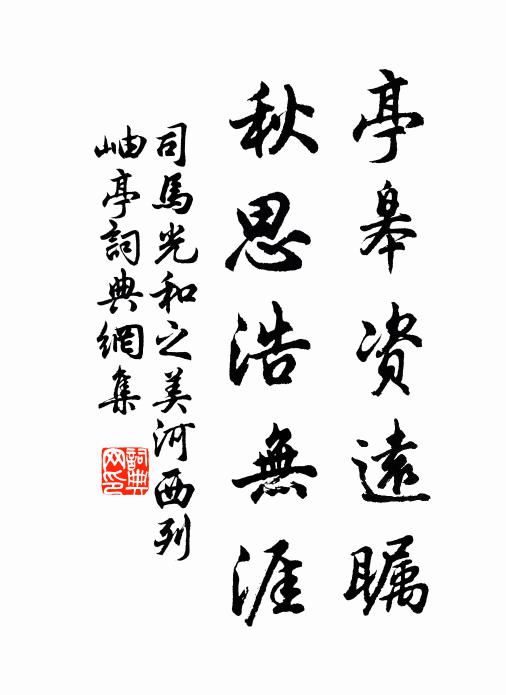 亭皋資遠瞩
秋思浩無涯
司馬光和之美河西列
岫亭詞典網集
詞典网印